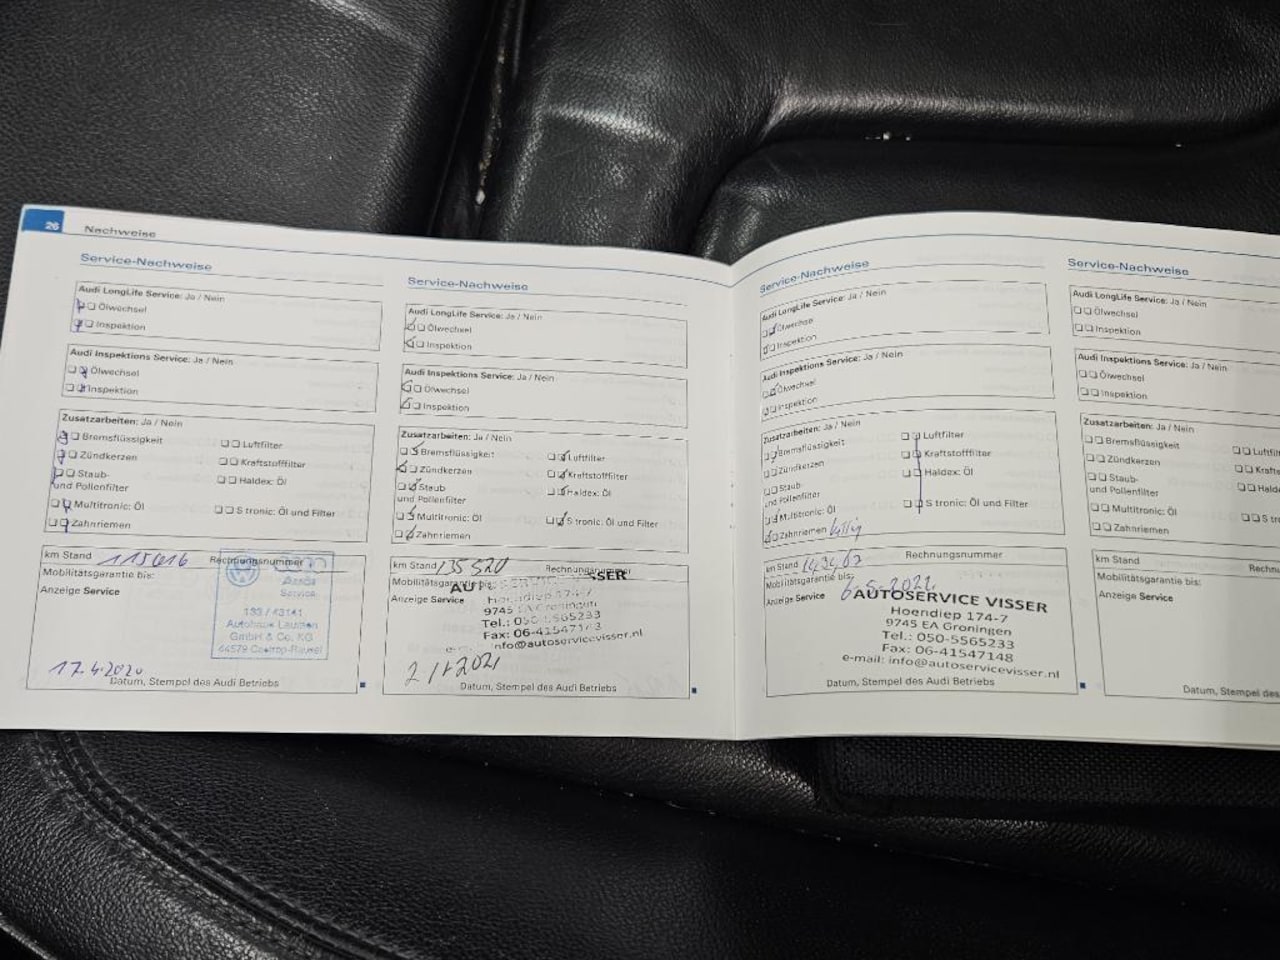 26 Nachweise
Service-Nachweise
Audi LongLife Service: Ja / Nein
Ölwechsel
Inspektion
Audi Inspektions Service: Ja / Nein
Ölwechsel
Inspektion
Zusatzarbeiten: Ja / Nein
Bremsflüssigkeit Luftfilter
Zündkerzen Kraftstofffilter
Staub- Haldex: Öl
und Pollenfilter
Multitronic: Öl S tronic: Öl und Filter
Zahnriemen
km Stand 115016 Rechnungsnummer
Mobilitätsgarantie bis:
Anzeige Service
Service
GmbH & Co. KG
17.4.2020
Datum, Stempel des Audi Betriebs
Service-Nachweise
Audi LongLife Service: Ja / Nein
Ölwechsel
Inspektion
Audi Inspektions Service: Ja / Nein
Ölwechsel
Inspektion
Zusatzarbeiten: Ja / Nein
Bremsflüssigkeit Luftfilter
Zündkerzen Kraftstofffilter
Staub Haldex: Öl
und Pollenfilter
Multitronic: Öl S tronic: Öl und Filter
Zahnriemen
km Stand 135520 Rechnungsnummer
Mobilitätsgarantie bis:
Anzeige Service
9745 EA Groningen
Tel.: 050-5565233
Fax: 06-41547143
info@autoservicevisser.nl
Datum, Stempel des Audi Betriebs
Service-Nachweise
Audi LongLife Service: Ja / Nein
Ölwechsel
Inspektion
Audi Inspektions Service: Ja / Nein
Ölwechsel
Inspektion
Zusatzarbeiten: Ja / Nein
Bremsflüssigkeit Luftfilter
Zündkerzen Kraftstofffilter
Staub- Haldex: Öl
und Pollenfilter
Multitronic: Öl S tronic: Öl und Filter
Zahnriemen
km Stand Rechnungsnummer
Mobilitätsgarantie bis:
Anzeige Service 6-5-2022
AUTOSERVICE VISSER
Hoendiep 174-7
9745 EA Groningen
Tel.: 050-5565233
Fax: 06-41547148
e-mail: info@autoservicevisser.nl
Datum, Stempel des Audi Betriebs
Service-Nachweise
Audi LongLife Service: Ja / Nein
Ölwechsel
Inspektion
Audi Inspektions Service: Ja / Nein
Ölwechsel
Inspektion
Zusatzarbeiten: Ja / Nein
Bremsflüssigkeit Luftfil
Zündkerzen Krafts
Staub- Halde
und Pollenfilter
Multitronic: Öl S tro
Zahnriemen
km Stand Rechn
Mobilitätsgarantie bis:
Anzeige Service
Datum, Stempel des